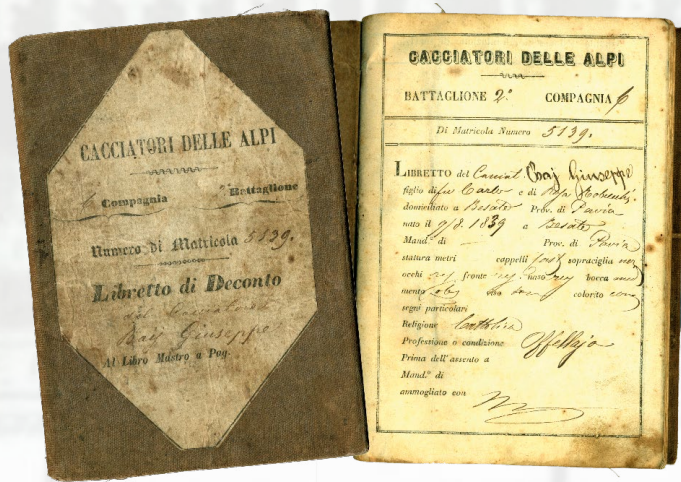 CACCIATORI DELLE ALPI
6 Compagnia 2° Battaglione
Numero di Matricola 5139.
Libretto di Deconto
del
Giuseppe
Al Libro Mastro a Pag.
CACCIATORI DELLE ALPI
BATTAGLIONE 2° COMPAGNIA 6
Di Matricola Numero 5139.
LIBRETTO del Giuseppe
figlio di fu Carlo e di Rosa
domiciliato a Besate Prov. di Pavia
nato il 9/8. 1839 a Besate
Mand.° di — Prov. di Pavia
statura metri capelli sopraciglia
occhi fronte naso bocca
mento viso colorito
segni particolari
Religione Cattolica
Professione o condizione Offellajo
Prima dell'assento a
Mand.° di
ammogliato con